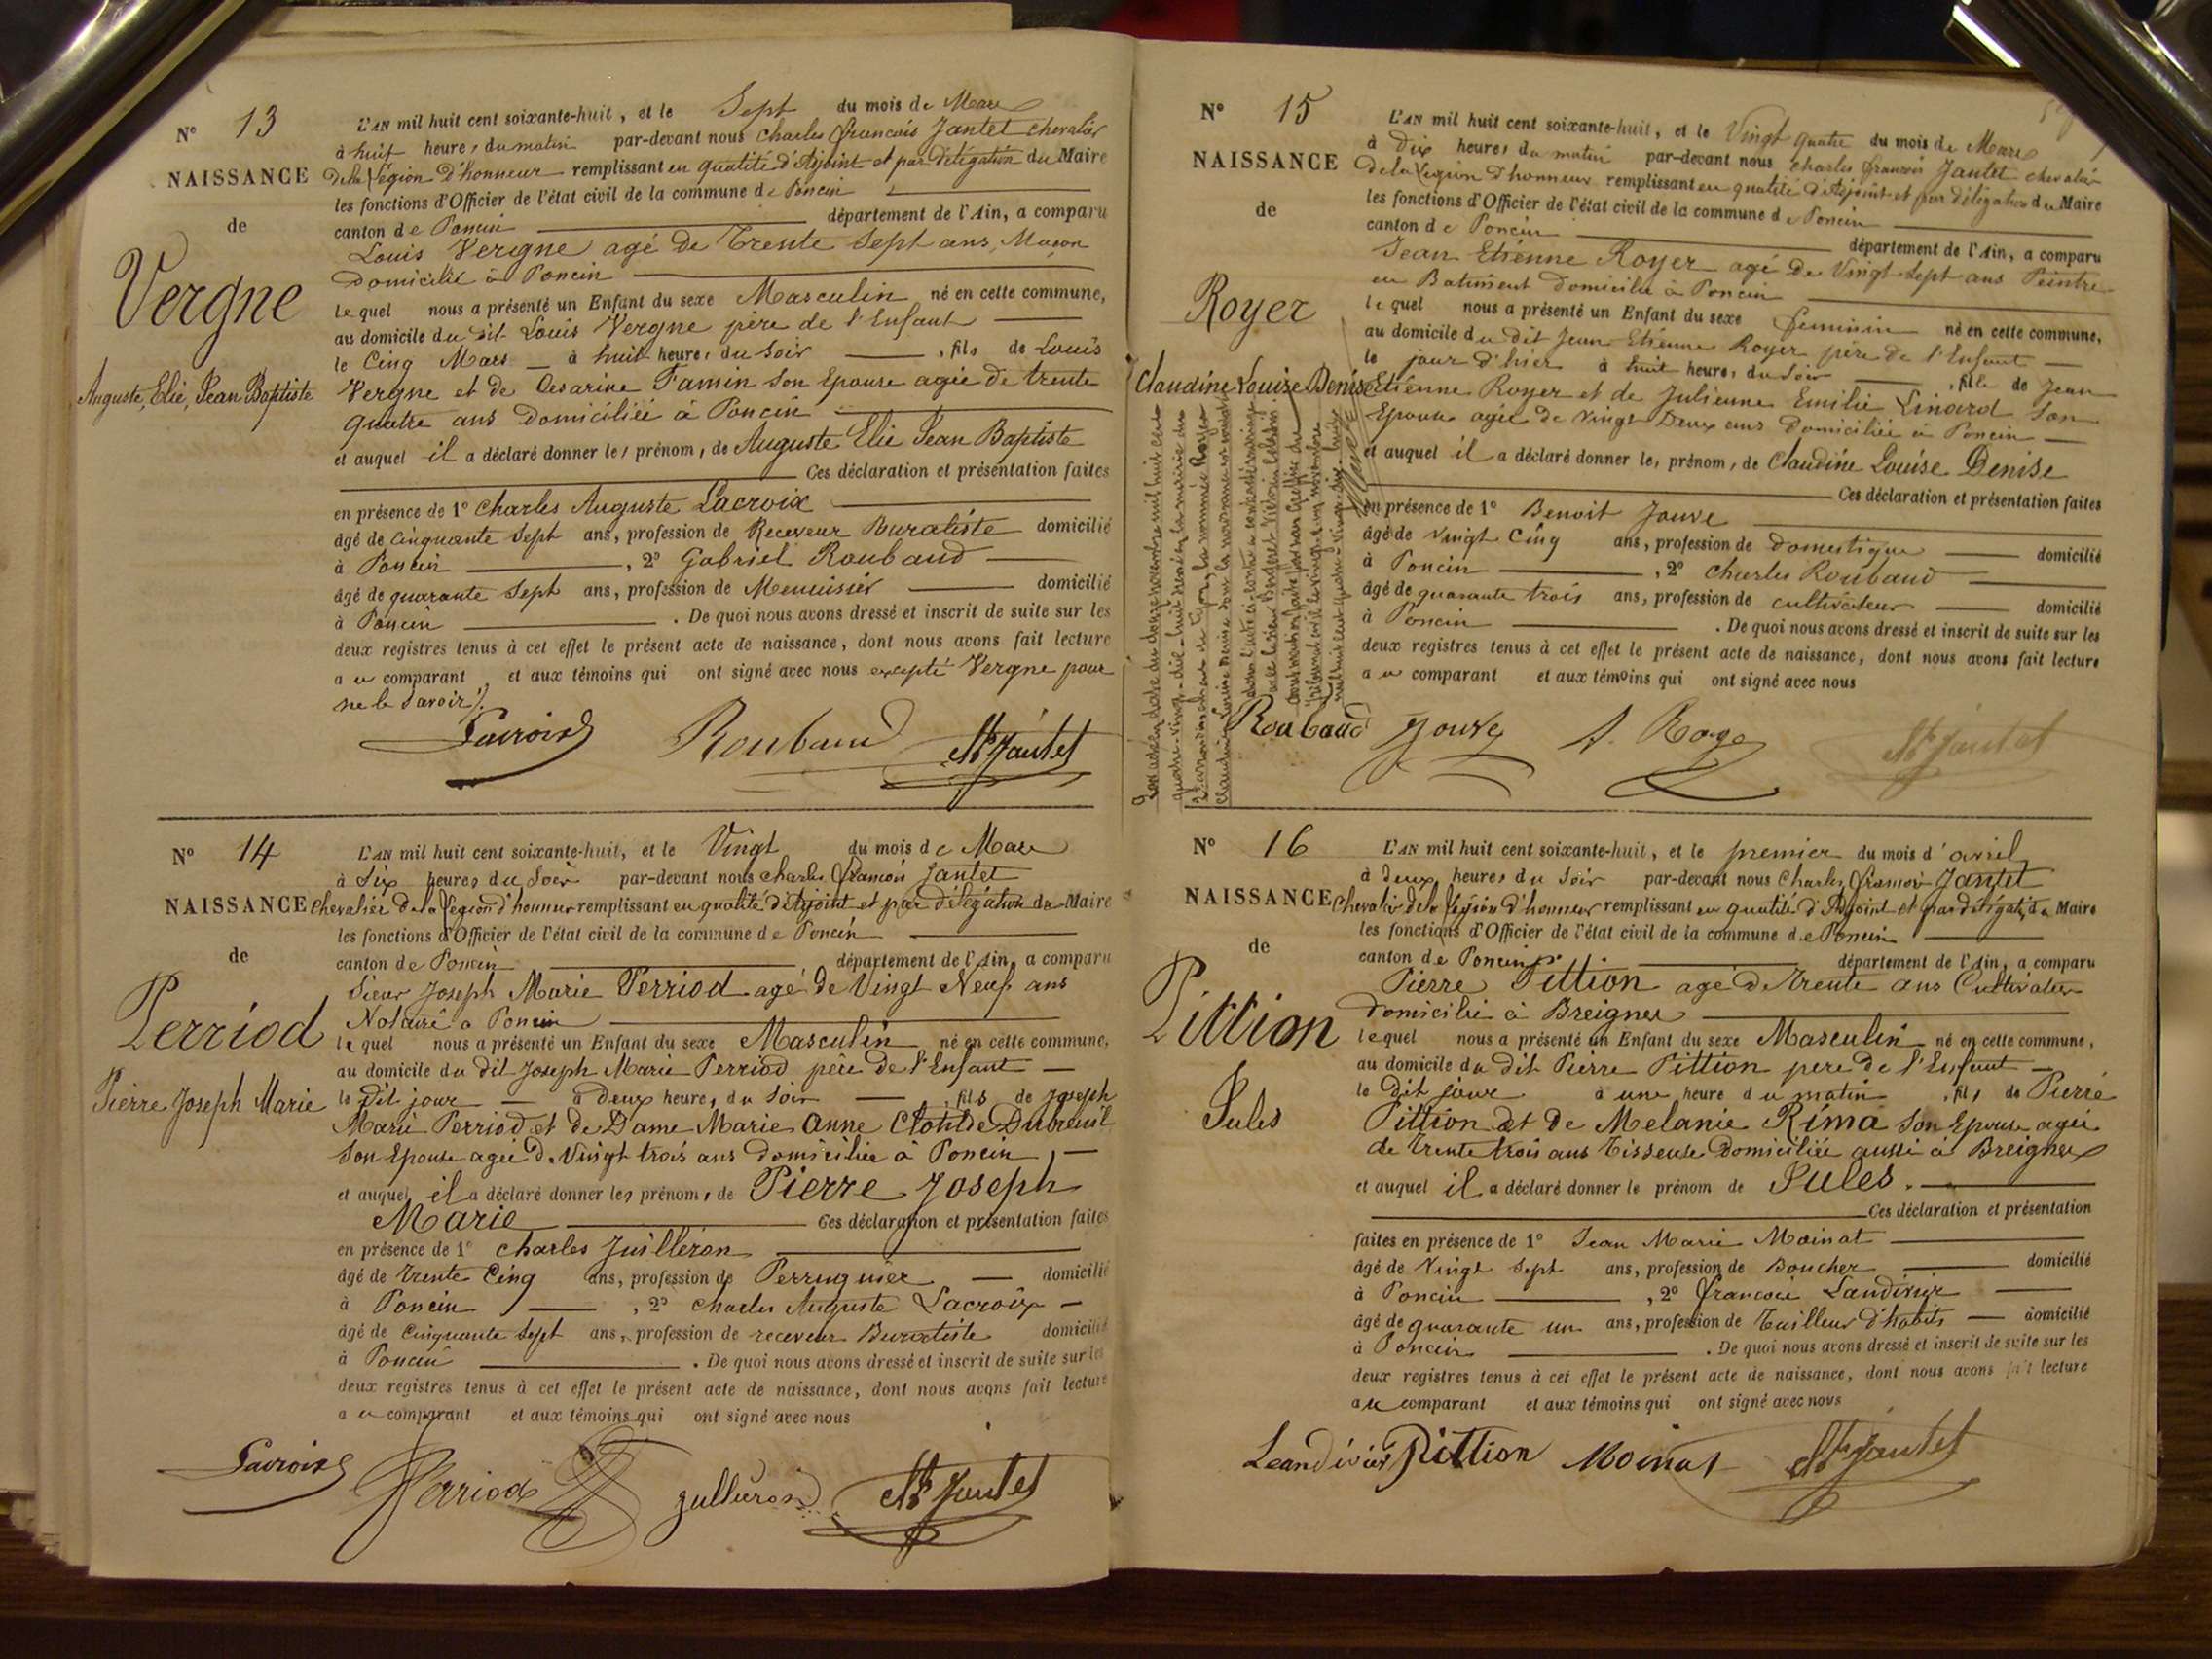 N° 13
NAISSANCE
de
Vergne
Auguste, Elie, Jean Baptiste
L'AN mil huit cent soixante-huit, et le Sept du mois de Mars
à huit heures du matin par-devant nous Charles François Jantet chevalier
de la Légion d'honneur remplissant en qualité d'Adjoint et par délégation du Maire
les fonctions d'Officier de l'état civil de la commune de Poncin
canton de Poncin département de l'Ain, a comparu
Louis Vergne agé de Trente Sept ans, Maçon
domicilié à Poncin
lequel nous a présenté un Enfant du sexe Masculin né en cette commune,
au domicile du dit Louis Vergne père de l'Enfant
le Cinq Mars à huit heures du Soir, fils de Louis
Vergne et de Cesarine Famin son Epouse agée de trente
quatre ans domiciliée à Poncin
et auquel il a déclaré donner les prénoms de Auguste Elie Jean Baptiste
Ces déclaration et présentation faites
en présence de 1° Charles Auguste Lacroix
âgé de cinquante sept ans, profession de Receveur Buraliste domicilié
à Poncin, 2° Gabriel Roubaud
âgé de quarante sept ans, profession de Menuisier domicilié
à Poncin. De quoi nous avons dressé et inscrit de suite sur les
deux registres tenus à cet effet le présent acte de naissance, dont nous avons fait lecture
au comparant et aux témoins qui ont signé avec nous excepté Vergne pour
ne le savoir.
Lacroix Roubaud Jantet
N° 14
NAISSANCE
de
Perriod
Pierre Joseph Marie
L'AN mil huit cent soixante-huit, et le Vingt du mois de Mars
à Six heures du Soir par-devant nous Charles François Jantet
Chevalier de la Légion d'honneur remplissant en qualité d'Adjoint et par délégation du Maire
les fonctions d'Officier de l'état civil de la commune de Poncin
canton de Poncin département de l'Ain, a comparu
Sieur Joseph Marie Perriod agé de Vingt Neuf ans
Notaire a Poncin
lequel nous a présenté un Enfant du sexe Masculin né en cette commune,
au domicile du dit Joseph Marie Perriod père de l'Enfant
le Dit jour à deux heures du Soir, fils de Joseph
Marie Perriod et de Dame Marie Anne Clotilde Dubreuil
son Epouse agée de Vingt trois ans domiciliée à Poncin,
et auquel il a déclaré donner les prénoms de Pierre Joseph
Marie Ces déclaration et présentation faites
en présence de 1° Charles Juilleron
âgé de trente Cinq ans, profession de Perruquier domicilié
à Poncin, 2° Charles Auguste Lacroix
âgé de Cinquante Sept ans, profession de receveur Buraliste domicilié
à Poncin. De quoi nous avons dressé et inscrit de suite sur les
deux registres tenus à cet effet le présent acte de naissance, dont nous avons fait lecture
au comparant et aux témoins qui ont signé avec nous
Lacroix Perriod Julleron Jantet
N° 15
NAISSANCE
de
Royer
Claudine Louise Denise
L'AN mil huit cent soixante-huit, et le Vingt quatre du mois de Mars
à Dix heures du matin par-devant nous Charles François Jantet chevalier
de la Légion d'honneur remplissant en qualité d'Adjoint et par délégation du Maire
les fonctions d'Officier de l'état civil de la commune de Poncin
canton de Poncin département de l'Ain, a comparu
Jean Etienne Royer agé de Vingt Sept ans Peintre
en Batiment Domicilié à Poncin
lequel nous a présenté un Enfant du sexe feminin né en cette commune,
au domicile du dit Jean Etienne Royer père de l'Enfant
le jour d'hier à huit heures du Soir, fille de Jean
Etienne Royer et de Julienne Emilie Linard Son
Epouse agée de Vingt Deux ans domiciliée à Poncin
et auquel il a déclaré donner les prénoms de Claudine Louise Denise
Ces déclaration et présentation faites
en présence de 1° Benoit Jouve
âgé de Vingt Cinq ans, profession de Domestique domicilié
à Poncin, 2° Charles Roubaud
âgé de quarante trois ans, profession de cultivateur domicilié
à Poncin. De quoi nous avons dressé et inscrit de suite sur les
deux registres tenus à cet effet le présent acte de naissance, dont nous avons fait lecture
au comparant et aux témoins qui ont signé avec nous
Roubaud Jouve Jantet
N° 16
NAISSANCE
de
Pittion
Jules
L'AN mil huit cent soixante-huit, et le premier du mois d'avril
à deux heures du Soir par-devant nous Charles François Jantet
Chevalier de la Légion d'honneur remplissant en qualité d'Adjoint et par délégation du Maire
les fonctions d'Officier de l'état civil de la commune de Poncin
canton de Poncin département de l'Ain, a comparu
Pierre Pittion agé de trente ans Cultivateur
domicilié à Breignes
lequel nous a présenté un Enfant du sexe Masculin né en cette commune,
au domicile du dit Pierre Pittion pere de l'Enfant
le Dit jour à une heure du matin, fils de Pierre
Pittion et de Melanie Rima son Epouse agée
de trente trois ans Tisseuse Domiciliée aussi à Breignes
et auquel il a déclaré donner le prénom de Jules.
Ces déclaration et présentation
faites en présence de 1° Jean Marie Moinat
âgé de Vingt Sept ans, profession de Boucher domicilié
à Poncin, 2° François Landivier
âgé de quarante un ans, profession de Tailleur d'habits domicilié
à Poncin. De quoi nous avons dressé et inscrit de suite sur les
deux registres tenus à cet effet le présent acte de naissance, dont nous avons fait lecture
au comparant et aux témoins qui ont signé avec nous
Leandivier Pittion Moinat Jantet